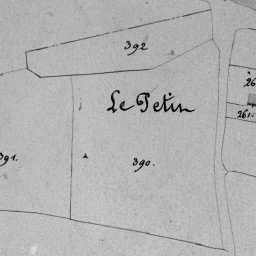 392
Le Petin
391.
390.
26
261.